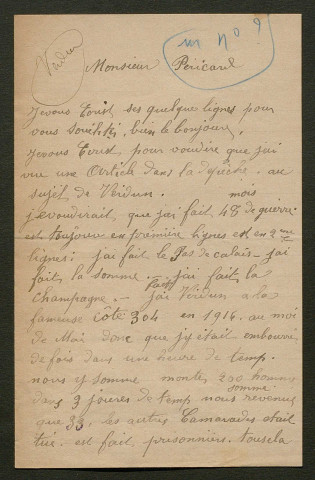 Verdun
un N° ?
Monsieur Péricard
Jevous Ecrit ses quelque lignes pour
vous souhété, bien le bonjour,
Jevous Ecrit pour voudire que j'ai
vue une Article dans la dépêche. au
sujet de Verdun.
mois
jevoudrait que j'ai fait 48 de guerre
est toujours en première lignes est en 2me
lignes: j'ai fait le Pas de calais - j'ai
fait la somme - j'ai fait la
champagne. - j'ai fait Verdun a la
fameuse côte 304 en 1916. au moi
de Mai donc que j'y était embourré
de fois dans une heure de temp.
nous y somme montés 200 hommes
dans 3 joures de temp nous somme revenus
que 33, les autres Camarades était
tué. est fait prisonniers. tousela